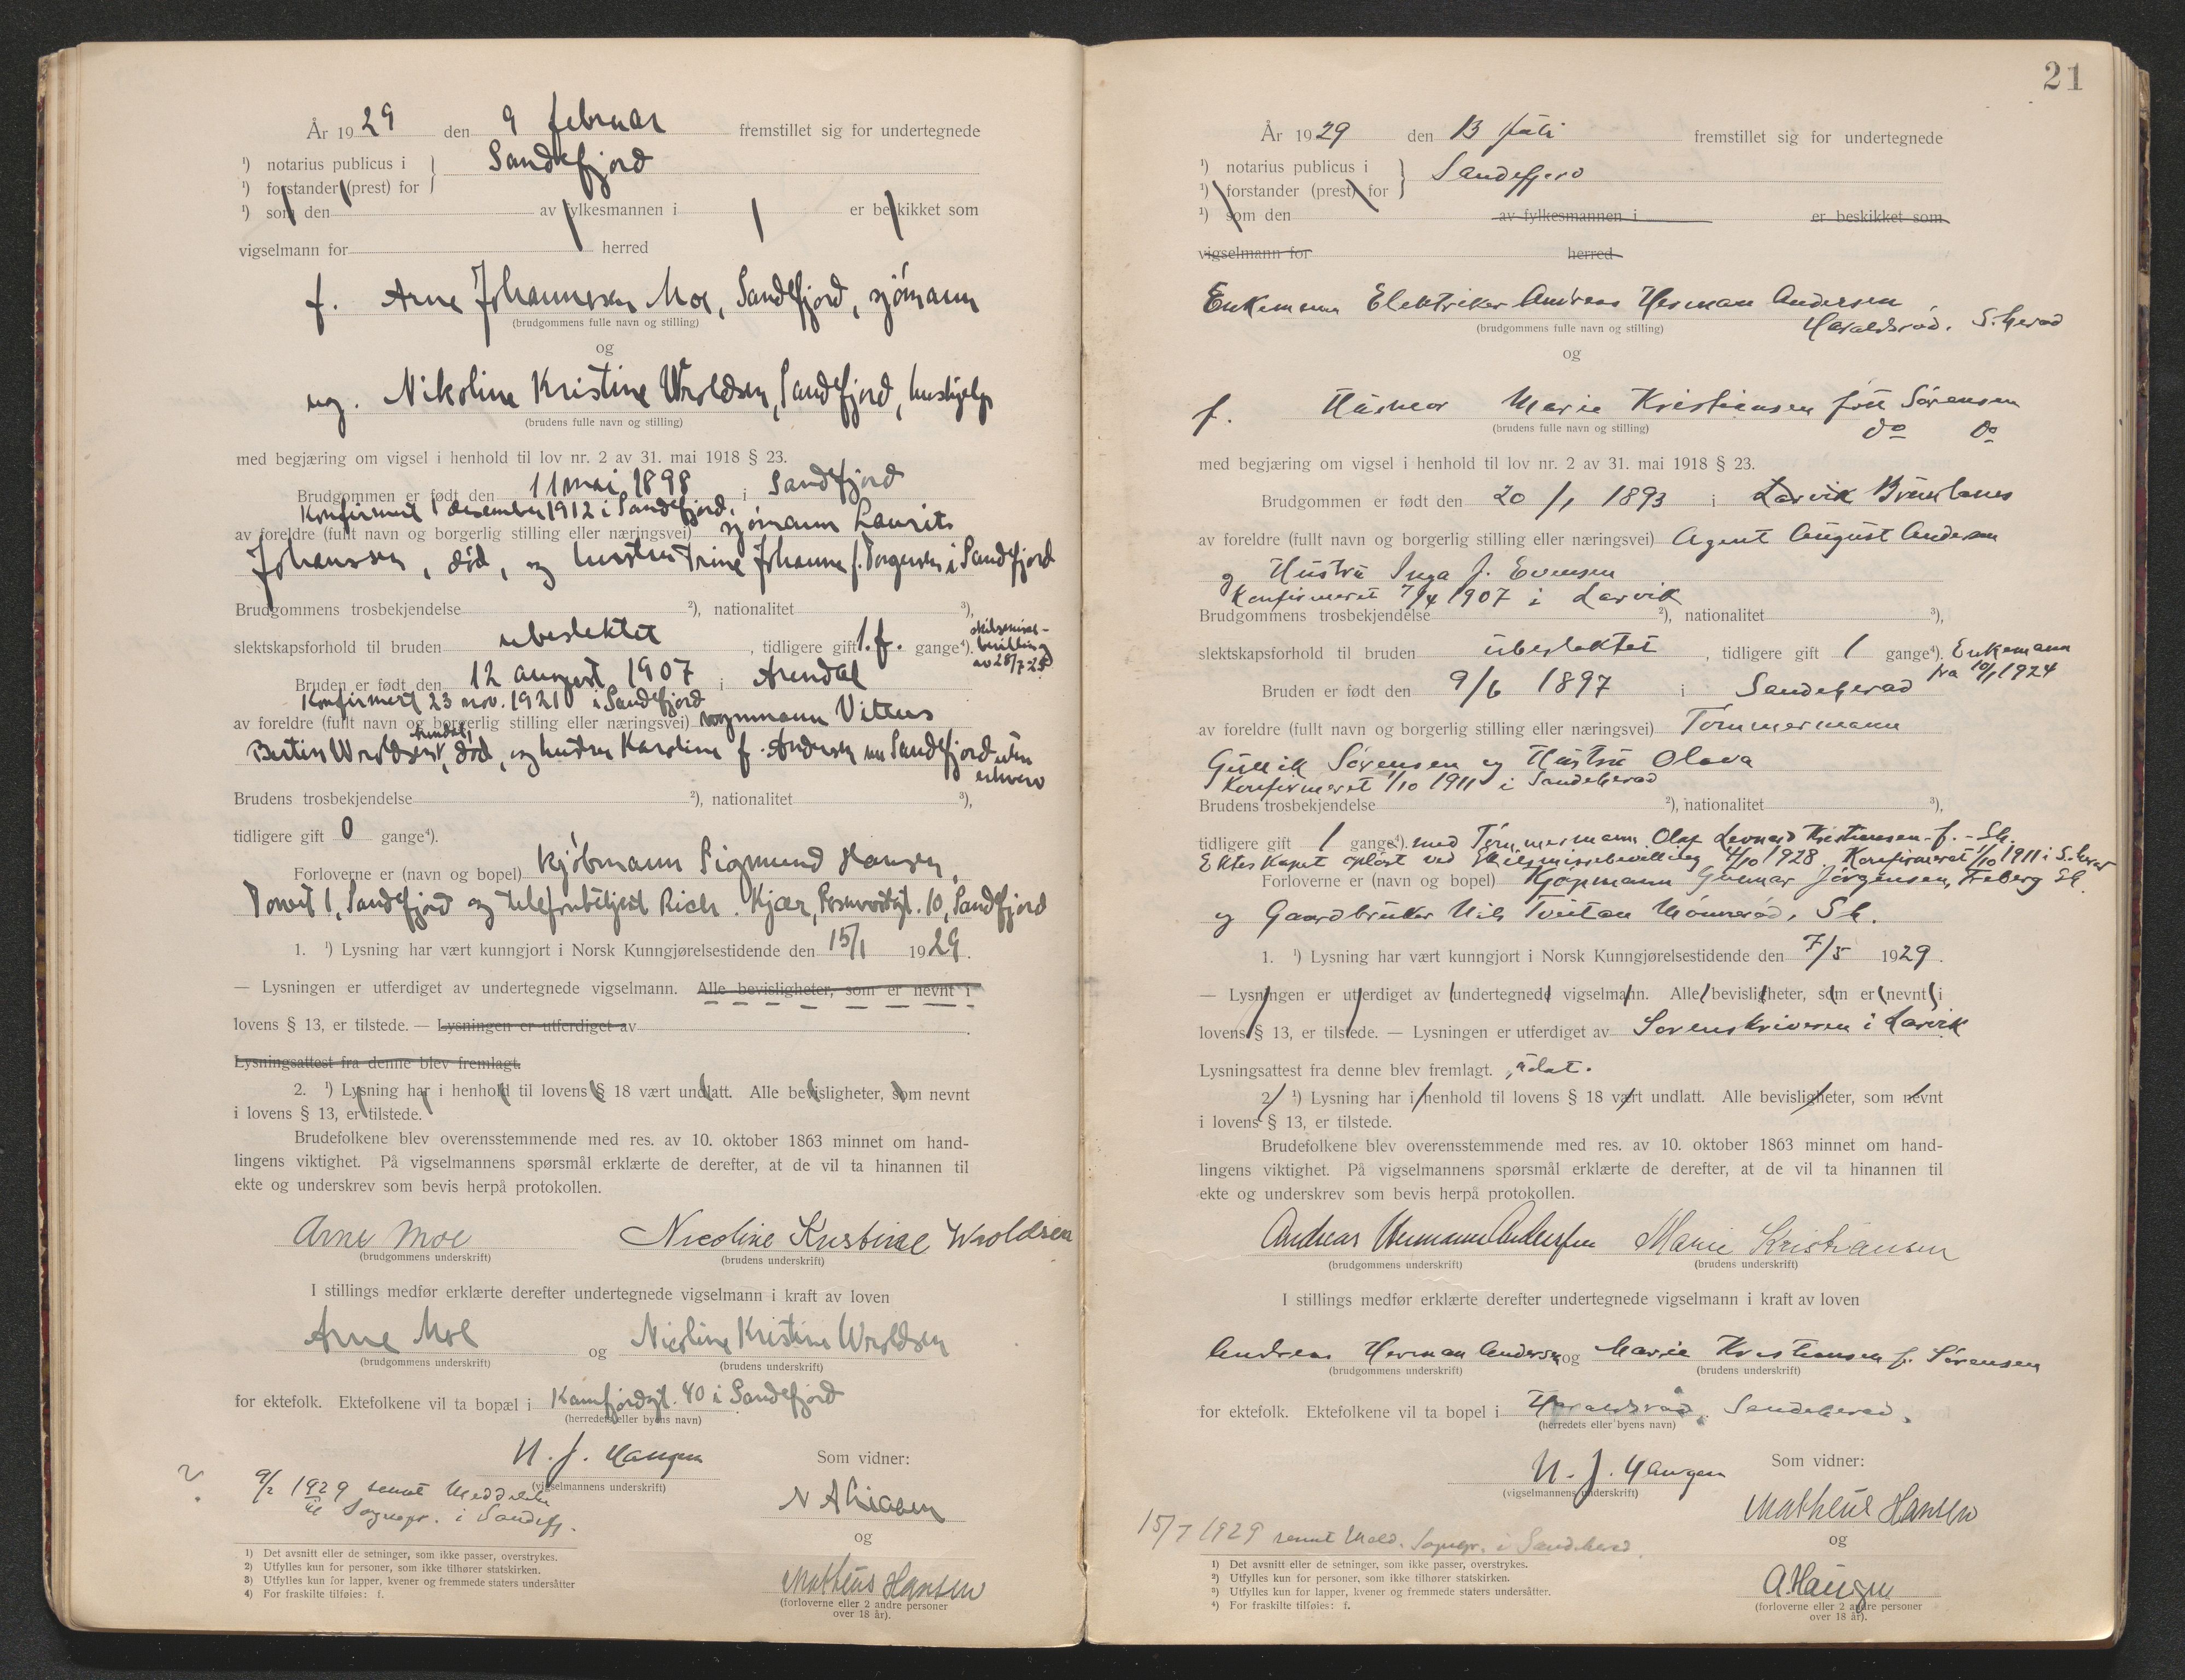 År 1929 den 9 februar fremstillet sig for undertegnede
¹) notarius publicus i } Sandefjord
¹) forstander (prest) for
¹) som den av fylkesmannen i er beskikket som
vigselmann for herred
f. Arne Johannesen Moe, Sandefjord, sjømann
(brudgommens fulle navn og stilling)
og
ug. Nikoline Kristine Wroldsen, Sandefjord, hushjelp
(brudens fulle navn og stilling)
med begjæring om vigsel i henhold til lov nr. 2 av 31. mai 1918 § 23.
Brudgommen er født den 11 mai 1898 i Sandefjord
Konfirmert 1 desember 1912 i Sandefjord.
av foreldre (fullt navn og borgerlig stilling eller næringsvei) sjømann Laurits
Johanssen, død, og hustru Trine Johanne f. Torgersen i Sandefjord
Brudgommens trosbekjendelse ²), nationalitet ³),
slektskapsforhold til bruden ubeslektet, tidligere gift 1. f. gange⁴). skilsmisse-
bevilling
av 28/7-25
Bruden er født den 12 august 1907 i Arendal
Konfirmert 23 nov. 1921 i Sandefjord
av foreldre (fullt navn og borgerlig stilling eller næringsvei) vognmann Vittus
Bertin Wroldsen, Arendal, død, og hustru Karoline f. Andersen nu Sandefjord uten
erhverv
Brudens trosbekjendelse ²), nationalitet ³),
tidligere gift 0 gange⁴).
Forloverne er (navn og bopel) Kjøbmann Sigmund Hansen,
Torvet 1, Sandefjord og telefonbetjent Rich. Kjær, 10, Sandefjord
1. ¹) Lysning har vært kunngjort i Norsk Kunngjørelsestidende den 15/1 1929.
— Lysningen er utferdiget av undertegnede vigselmann. Alle bevisligheter, som er nevnt i
lovens § 13, er tilstede. — Lysningen er utferdiget av
Lysningsattest fra denne blev fremlagt.
2. ¹) Lysning har i henhold til lovens § 18 vært undlatt. Alle bevisligheter, som nevnt
i lovens § 13, er tilstede.
Brudefolkene blev overensstemmende med res. av 10. oktober 1863 minnet om hand-
lingens viktighet. På vigselmannens spørsmål erklærte de derefter, at de vil ta hinannen til
ekte og underskrev som bevis herpå protokollen.
Arne Moe Nicoline Kristine Wroldsen
(brudgommens underskrift) (brudens underskrift)
I stillings medfør erklærte derefter undertegnede vigselmann i kraft av loven
Arne Moe og Nicoline Kristine Wroldsen
(brudgommens underskrift) (brudens underskrift)
for ektefolk. Ektefolkene vil ta bopæl i Kamfjordgt. 40 i Sandefjord
(herredets eller byens navn)
N. J. Haugen Som vidner:
(vigselmannens underskrift)
9/2 1929 sendt Meddelelse
til Sognepr. i Sandefj.
og
Matheus Hansen
(forloverne eller 2 andre personer
over 18 år).
1) Det avsnitt eller de setninger, som ikke passer, overstrykes.
2) Utfylles kun for personer, som ikke tilhører statskirken.
3) Utfylles kun for lapper, kvener og fremmede staters undersåtter
4) For fraskilte tilføies: f.
21
År 1929 den 13 Juli fremstillet sig for undertegnede
¹) notarius publicus i } Sandefjord
¹) forstander (prest) for
¹) som den av fylkesmannen i er beskikket som
vigselmann for herred
Enkemann Elektriker Andreas Herman Andersen
(brudgommens fulle navn og stilling) Haraldsrød. S.herad
og
f. Husmor Marie Kristiansen født Sørensen
(brudens fulle navn og stilling) do do
med begjæring om vigsel i henhold til lov nr. 2 av 31. mai 1918 § 23.
Brudgommen er født den 20/1 1893 i Larvik Brunlanes
av foreldre (fullt navn og borgerlig stilling eller næringsvei) Agent August Andersen
og Hustru Inga f. Evensen
Konfirmeret 7/4 1907 i Larvik
Brudgommens trosbekjendelse ²), nationalitet ³),
slektskapsforhold til bruden ubeslektet, tidligere gift 1 gange⁴). Enkemann
fra 10/1 1924
Bruden er født den 9/6 1897 i Sandeherad
av foreldre (fullt navn og borgerlig stilling eller næringsvei) Tømmermann
Gullik Sørensen og Hustru Olava
Konfirmeret 1/10 1911 i Sandeherad
Brudens trosbekjendelse ²), nationalitet ³),
tidligere gift 1 gange⁴). med Tømmermann Olaf Leonard Kristiansen - f. - Sh.
Ekteskapet opløst ved Skilsmissebevilling 4/10 1928. Konfirmeret 1/10 1911 i S.herad
Forloverne er (navn og bopel) Kjøpmann Gunnar Jørgensen, Freberg Sh.
og Gaardbruker Nils Tveitan Mønnerød, Sh.
1. ¹) Lysning har vært kunngjort i Norsk Kunngjørelsestidende den 7/5 1929.
— Lysningen er utferdiget av undertegnede vigselmann. Alle bevisligheter, som er nevnt i
lovens § 13, er tilstede. — Lysningen er utferdiget av Sorenskriveren i Larvik
Lysningsattest fra denne blev fremlagt. udat.
2. ¹) Lysning har i henhold til lovens § 18 vært undlatt. Alle bevisligheter, som nevnt
i lovens § 13, er tilstede.
Brudefolkene blev overensstemmende med res. av 10. oktober 1863 minnet om hand-
lingens viktighet. På vigselmannens spørsmål erklærte de derefter, at de vil ta hinannen til
ekte og underskrev som bevis herpå protokollen.
Andreas Hermann Andersen Marie Kristiansen
(brudgommens underskrift) (brudens underskrift)
I stillings medfør erklærte derefter undertegnede vigselmann i kraft av loven
Andreas Herman Andersen og Marie Kristiansen f. Sørensen
(brudgommens underskrift) (brudens underskrift)
for ektefolk. Ektefolkene vil ta bopel i Haraldsrød, Sandeherad.
(herredets eller byens navn)
N. J. Haugen Som vidner:
(vigselmannens underskrift)
Matheus Hansen
15/7 1929 sendt Medd. Sognepr. i Sandeherad.
og
A. Haugen
(forloverne eller 2 andre personer
over 18 år).
1) Det avsnitt eller de setninger, som ikke passer, overstrykes.
2) Utfylles kun for personer, som ikke tilhører statskirken.
3) Utfylles kun for lapper, kvener og fremmede staters undersåtter.
4) For fraskilte tilføies: f.